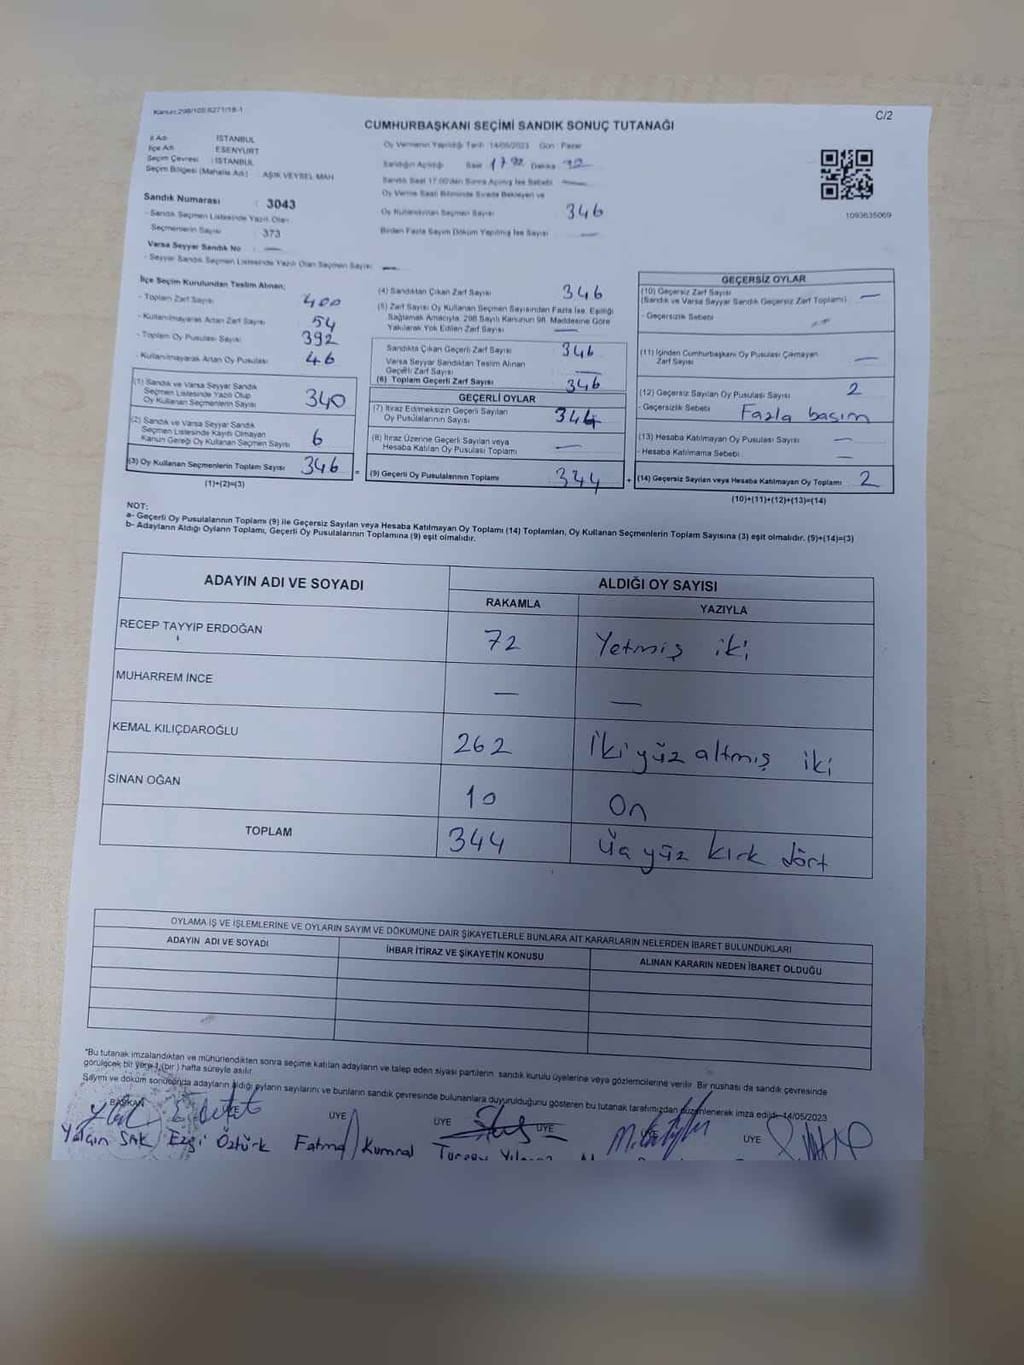 Kanun:298/105.6271/18-1
C/2
CUMHURBAŞKANI SEÇİMİ SANDIK SONUÇ TUTANAĞI
İl Adı : İSTANBUL
İlçe Adı : ESENYURT
Seçim Çevresi : İSTANBUL
Seçim Bölgesi (Mahalle Adı) : AŞIK VEYSEL MAH
Sandık Numarası : 3043
- Sandık Seçmen Listesinde Yazılı Olan
Seçmenlerin Sayısı : 373
Varsa Seyyar Sandık No : —
- Seyyar Sandık Seçmen Listesinde Yazılı Olan Seçmen Sayısı : —
Oy Vermenin Yapıldığı Tarih : 14/05/2023 Gün : Pazar
Sandığın Açıldığı Saat Dakika
Sandık Saat 17:00'dan Sonra Açılmış İse Sebebi —
Oy Verme Saati Bitiminde Sırada Bekleyen ve
Oy Kullandırılan Seçmen Sayısı 346
Birden Fazla Sayım Döküm Yapılmış İse Sayısı —
1093635069
İlçe Seçim Kurulundan Teslim Alınan;
- Toplam Zarf Sayısı 400
- Kullanılmayarak Artan Zarf Sayısı 54
- Toplam Oy Pusulası Sayısı 392
- Kullanılmayarak Artan Oy Pusulası 46
(1) Sandık ve Varsa Seyyar Sandık
Seçmen Listesinde Yazılı Olup
Oy Kullanan Seçmenlerin Sayısı 340
(2) Sandık ve Varsa Seyyar Sandık
Seçmen Listesinde Kayıtlı Olmayan
Kanun Gereği Oy Kullanan Seçmen Sayısı 6
(3) Oy Kullanan Seçmenlerin Toplam Sayısı 346 =
(1)+(2)=(3)
(4) Sandıktan Çıkan Zarf Sayısı 346
(5) Zarf Sayısı Oy Kullanan Seçmen Sayısından Fazla İse, Eşitliği
Sağlamak Amacıyla, 298 Sayılı Kanunun 98. Maddesine Göre
Yakılarak Yok Edilen Zarf Sayısı —
Sandıkta Çıkan Geçerli Zarf Sayısı 346
Varsa Seyyar Sandıktan Teslim Alınan
Geçerli Zarf Sayısı —
(6) Toplam Geçerli Zarf Sayısı 346
GEÇERLİ OYLAR
(7) İtiraz Edilmeksizin Geçerli Sayılan
Oy Pusulalarının Sayısı 344
(8) İtiraz Üzerine Geçerli Sayılan veya
Hesaba Katılan Oy Pusulası Toplamı —
(9) Geçerli Oy Pusulalarının Toplamı 344 +
GEÇERSİZ OYLAR
(10) Geçersiz Zarf Sayısı
(Sandık ve Varsa Seyyar Sandık Geçersiz Zarf Toplamı) —
- Geçersizlik Sebebi : —
(11) İçinden Cumhurbaşkanı Oy Pusulası Çıkmayan
Zarf Sayısı —
(12) Geçersiz Sayılan Oy Pusulası Sayısı 2
- Geçersizlik Sebebi : Fazla basım
(13) Hesaba Katılmayan Oy Pusulası Sayısı —
- Hesaba Katılmama Sebebi : —
(14) Geçersiz Sayılan veya Hesaba Katılmayan Oy Toplamı 2
(10)+(11)+(12)+(13)=(14)
NOT:
a- Geçerli Oy Pusulalarının Toplamı (9) ile Geçersiz Sayılan veya Hesaba Katılmayan Oy Toplamı (14) Toplamları, Oy Kullanan Seçmenlerin Toplam Sayısına (3) eşit olmalıdır. (9)+(14)=(3)
b- Adayların Aldığı Oyların Toplamı, Geçerli Oy Pusulalarının Toplamına (9) eşit olmalıdır.
ADAYIN ADI VE SOYADI ALDIĞI OY SAYISI
RAKAMLA YAZIYLA
RECEP TAYYİP ERDOĞAN 72 Yetmiş iki
MUHARREM İNCE — —
KEMAL KILIÇDAROĞLU 262 İki yüz altmış iki
SİNAN OĞAN 10 On
TOPLAM 344 Üç yüz kırk dört
OYLAMA İŞ VE İŞLEMLERİNE VE OYLARIN SAYIM VE DÖKÜMÜNE DAİR ŞİKAYETLERLE BUNLARA AİT KARARLARIN NELERDEN İBARET BULUNDUKLARI
ADAYIN ADI VE SOYADI İHBAR İTİRAZ VE ŞİKAYETİN KONUSU ALINAN KARARIN NEDEN İBARET OLDUĞU
*Bu tutanak imzalandıktan ve mühürlendikten sonra seçime katılan adayların ve talep eden siyasi partilerin sandık kurulu üyelerine veya gözlemcilerine verilir. Bir nushası da sandık çevresinde
görülecek bir yere 1 (bir) hafta süreyle asılır.
Sayım ve döküm sonucunda adayların aldığı oyların sayılarını ve bunların sandık çevresinde bulunanlara duyurulduğunu gösteren bu tutanak tarafımızdan düzenlenerek imza edildi. 14/05/2023
BAŞKAN ÜYE ÜYE ÜYE ÜYE
Yalçın SAK Ezgi Öztürk Fatma Kumral